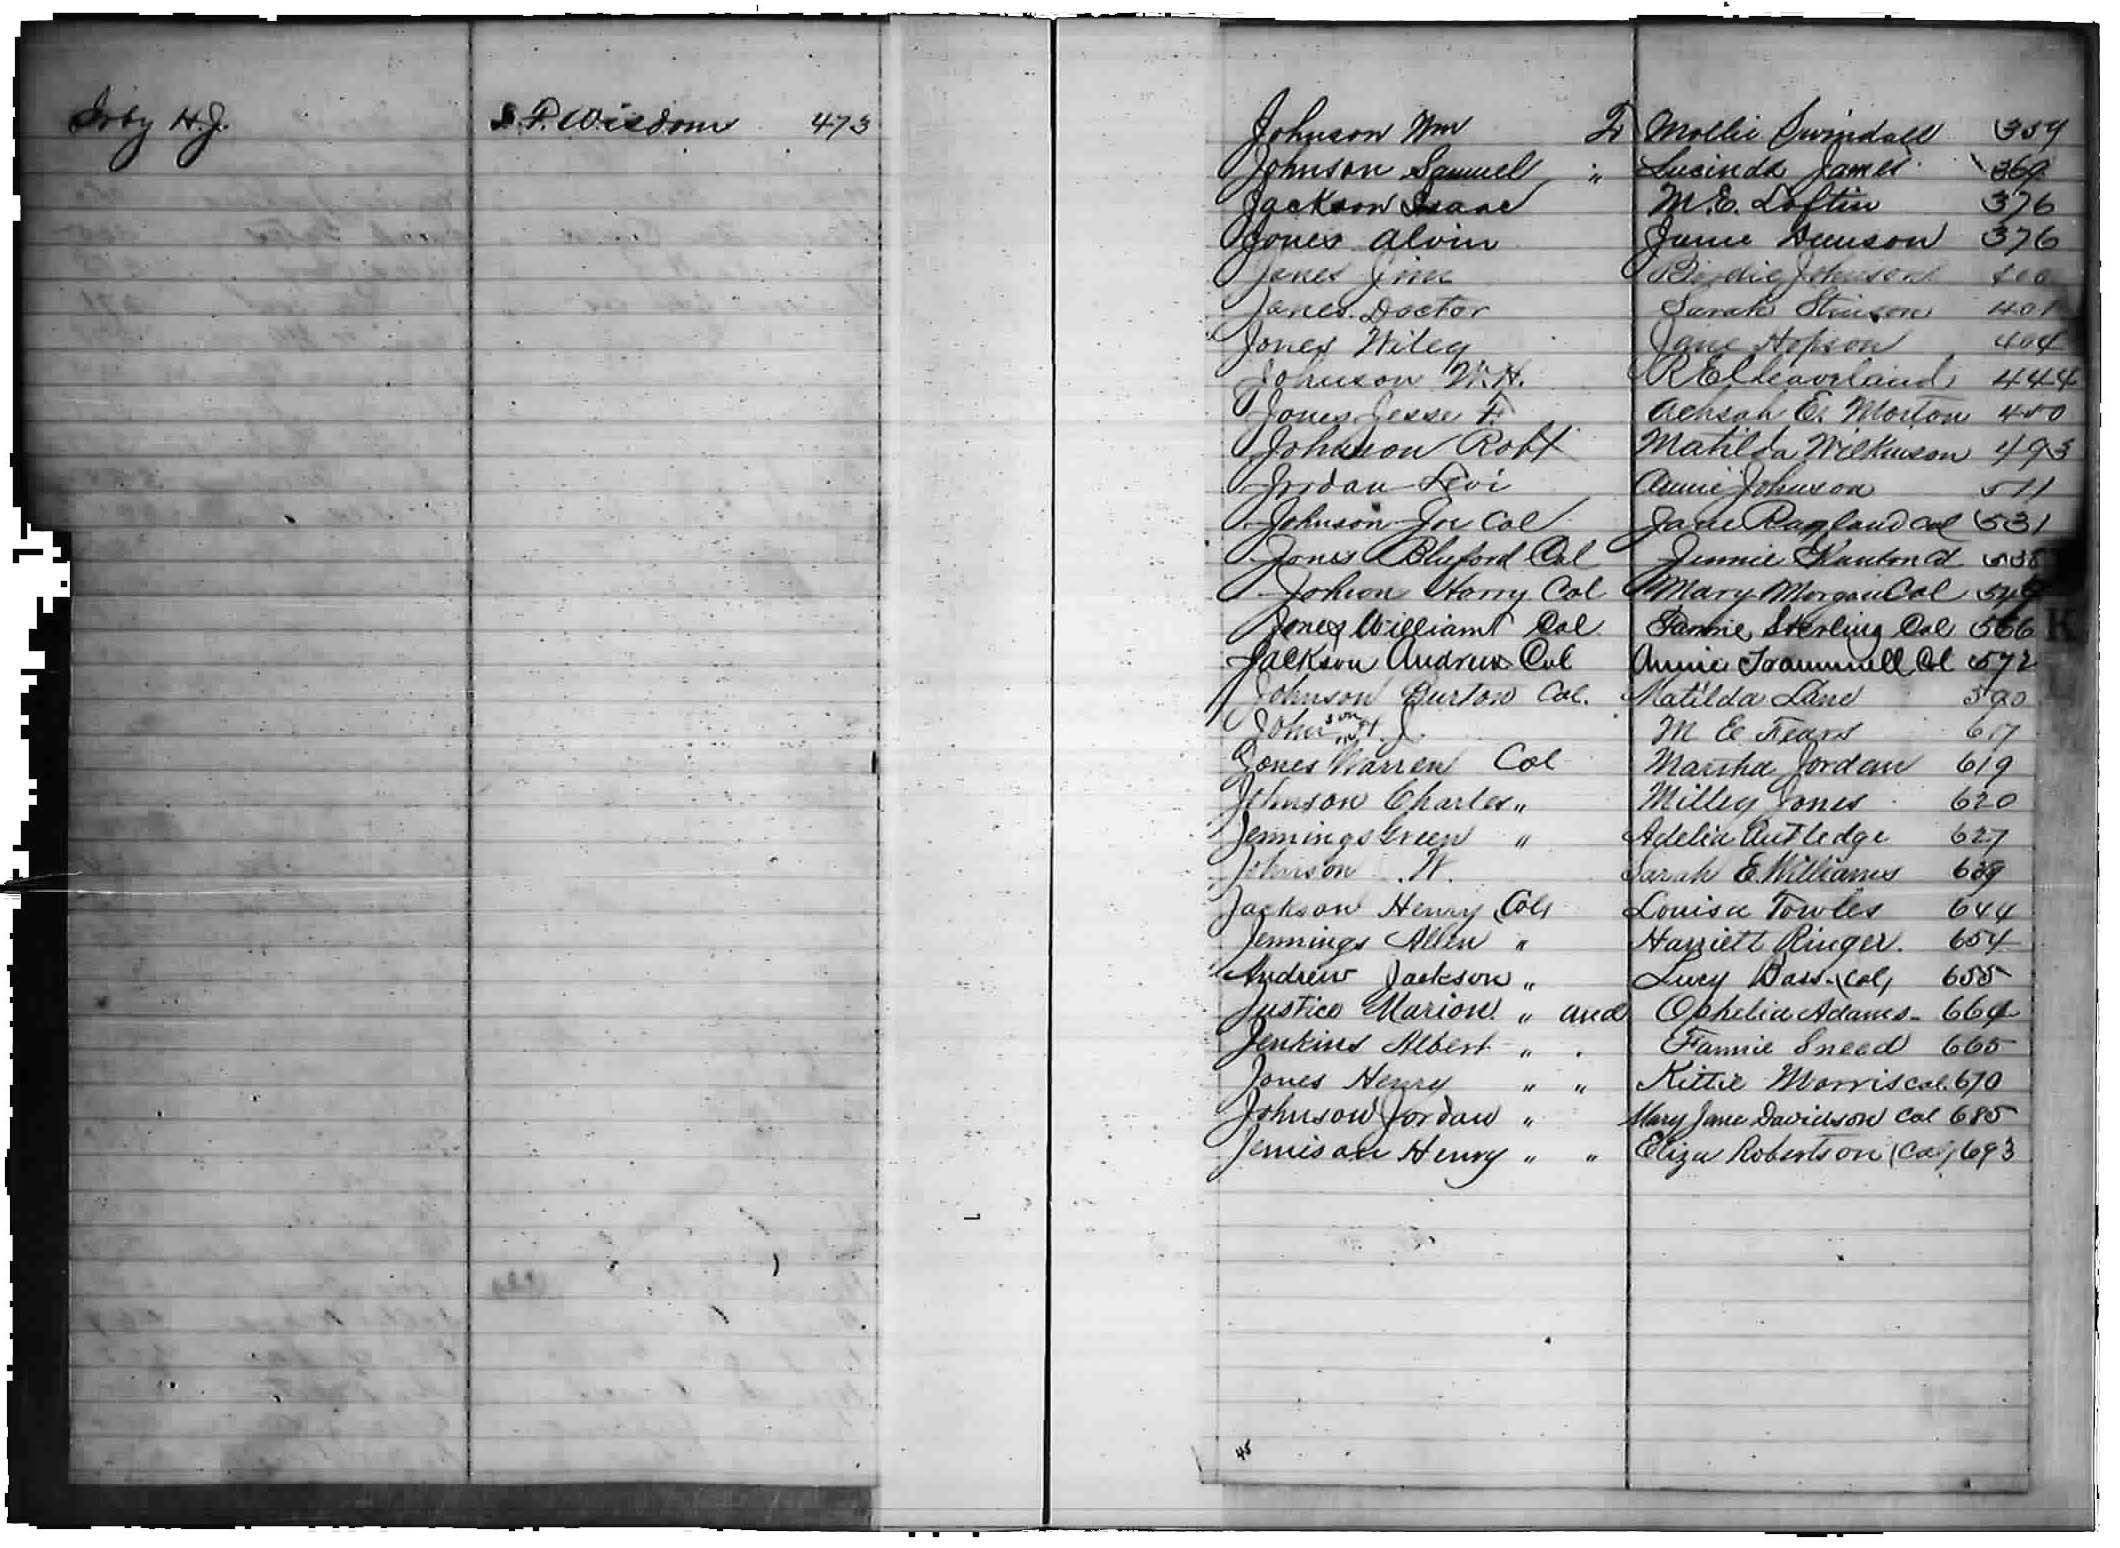 Irby H.J. S.F. Wisdom 473
Johnson Wm To Mollie Swindall 359
Johnson Samuel " Lucinda James 369
Jackson Isaac M.E. Loftin 376
Jones Alvin Janie Denson 376
Jones Jim Birdie Johnson 400
Jones Doctor Sarah Stinson 401
Jones Wiley Jane Hopson 404
Johnson W.H. R E Cleaveland 444
Jones Jesse F. Achsah E. Morton 450
Johnson Robt Matilda Wilkinson 493
Jordan Levi Annie Johnson 511
Johnson Joe Col Jane Ragland Col 531
Jones Bluford Col Jennie 538
Johson Harry Col Mary Morgan Col
Jones William Col Fannie Sterling Col 566
Jackson Andrew Col Annie Trammell Col 572
Johnson Burton Col. Matilda Lane 590
Johnson H. J. M E Fears 617
Jones Warren Col Marsha Jordan 619
Johnson Charles " Milley Jones 620
Jennings Green " Adelia Rutledge 627
Johnson W. Sarah E. Williams 639
Jackson Henry Col Louisa Towles 644
Jennings Allen " Harriett Ringer. 654
Andrew Jackson " Lucy Bass (Col) 655
Justice Marion " and Ophelia Adams 664
Jenkins Albert " . Fannie Sneed 665
Jones Henry " " Kittie Morris Col. 670
Johnson Jordan " Mary Jane Davidson Col 685
Jemison Henry " " Eliza Robertson (Col) 693
K
45